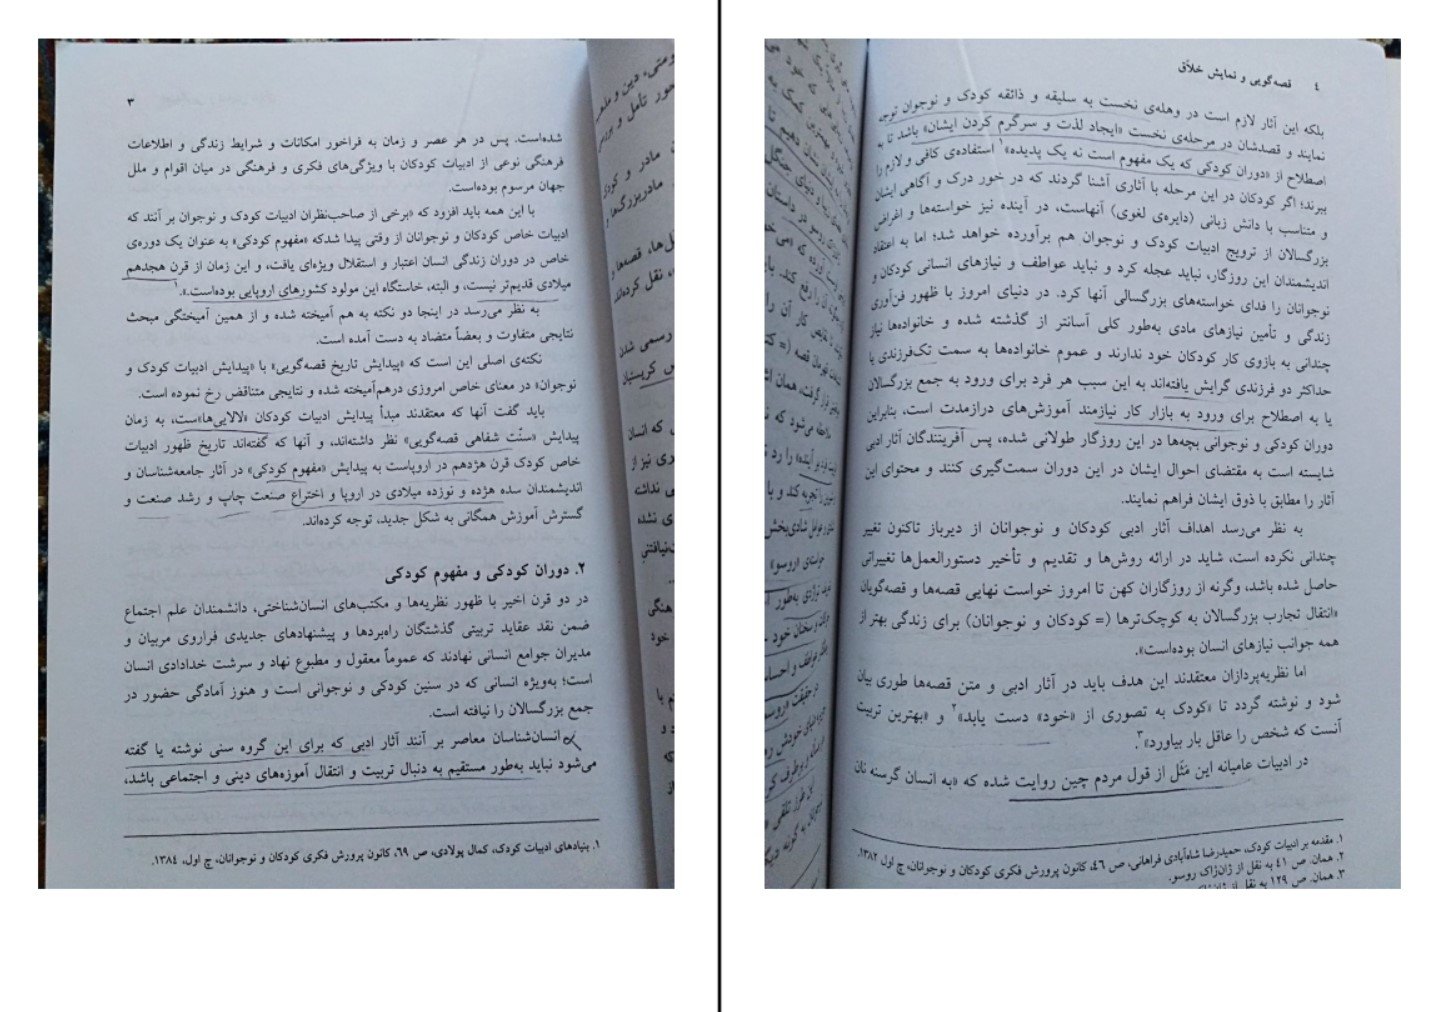 ۳
شده‌است. پس در هر عصر و زمان به فراخور امکانات و شرایط زندگی و اطلاعات
فرهنگی نوعی از ادبیات کودکان با ویژگی‌های فکری و فرهنگی در میان اقوام و ملل
جهان مرسوم بوده‌است.
با این همه باید افزود که «برخی از صاحب‌نظران ادبیات کودک و نوجوان بر آنند که
ادبیات خاص کودکان و نوجوانان از وقتی پیدا شدکه «مفهوم کودکی» به عنوان یک دوره‌ی
خاص در دوران زندگی انسان اعتبار و استقلال ویژه‌ای یافت، و این زمان از قرن هجدهم
میلادی قدیم‌تر نیست، و البته، خاستگاه این مولود کشورهای اروپایی بوده‌است.».۱
به نظر می‌رسد در اینجا دو نکته به هم آمیخته شده و از همین آمیختگی مبحث
نتایجی متفاوت و بعضاً متضاد به دست آمده است.
نکته‌ی اصلی این است که «پیدایش تاریخ قصه‌گویی» با «پیدایش ادبیات کودک و
نوجوان» در معنای خاص امروزی درهم‌آمیخته شده و نتایجی متناقض رخ نموده است.
باید گفت آنها که معتقدند مبدأ پیدایش ادبیات کودکان «لالایی‌ها»ست، به زمان
پیدایش «سنّت شفاهی قصه‌گویی» نظر داشته‌اند، و آنها که گفته‌اند تاریخ ظهور ادبیات
خاص کودک قرن هژدهم در اروپاست به پیدایش «مفهوم کودکی» در آثار جامعه‌شناسان و
اندیشمندان سده هژده و نوزده میلادی در اروپا و اختراع صنعت چاپ و رشد صنعت و
گسترش آموزش همگانی به شکل جدید، توجه کرده‌اند.
۲. دوران کودکی و مفهوم کودکی
در دو قرن اخیر با ظهور نظریه‌ها و مکتب‌های انسان‌شناختی، دانشمندان علم اجتماع
ضمن نقد عقاید تربیتی گذشتگان راه‌بردها و پیشنهادهای جدیدی فراروی مربیان و
مدیران جوامع انسانی نهادند که عموماً معقول و مطبوع نهاد و سرشت خدادادی انسان
است؛ به‌ویژه انسانی که در سنین کودکی و نوجوانی است و هنوز آمادگی حضور در
جمع بزرگسالان را نیافته است.
انسان‌شناسان معاصر بر آنند آثار ادبی که برای این گروه سنی نوشته یا گفته
می‌شود نباید به‌طور مستقیم به دنبال تربیت و انتقال آموزه‌های دینی و اجتماعی باشد،
۱. بنیادهای ادبیات کودک، کمال پولادی، ص ۶۹، کانون پرورش فکری کودکان و نوجوانان، چ اول، ۱۳۸٤.
٤ قصه‌گویی و نمایش خلاّق
بلکه این آثار لازم است در وهله‌ی نخست به سلیقه و ذائقه کودک و نوجوان توجه
نمایند و قصدشان در مرحله‌ی نخست «ایجاد لذت و سرگرم کردن ایشان» باشد تا به
اصطلاح از «دوران کودکی که یک مفهوم است نه یک پدیده»۱ استفاده‌ی کافی و لازم را
ببرند؛ اگر کودکان در این مرحله با آثاری آشنا گردند که در خور درک و آگاهی ایشان
و متناسب با دانش زبانی (دایره‌ی لغوی) آنهاست، در آینده نیز خواسته‌ها و اغراض
بزرگسالان از ترویج ادبیات کودک و نوجوان هم برآورده خواهد شد؛ اما به اعتقاد
اندیشمندان این روزگار، نباید عجله کرد و نباید عواطف و نیازهای انسانی کودکان و
نوجوانان را فدای خواسته‌های بزرگسالی آنها کرد. در دنیای امروز با ظهور فن‌آوری
زندگی و تأمین نیازهای مادی به‌طور کلی آسانتر از گذشته شده و خانواده‌ها نیاز
چندانی به بازوی کار کودکان خود ندارند و عموم خانواده‌ها به سمت تک‌فرزندی یا
حداکثر دو فرزندی گرایش یافته‌اند به این سبب هر فرد برای ورود به جمع بزرگسالان
یا به اصطلاح برای ورود به بازار کار نیازمند آموزش‌های درازمدت است، بنابراین
دوران کودکی و نوجوانی بچه‌ها در این روزگار طولانی شده، پس آفرینندگان آثار ادبی
شایسته است به مقتضای احوال ایشان در این دوران سمت‌گیری کنند و محتوای این
آثار را مطابق با ذوق ایشان فراهم نمایند.
به نظر می‌رسد اهداف آثار ادبی کودکان و نوجوانان از دیرباز تاکنون تغییر
چندانی نکرده است، شاید در ارائه روش‌ها و تقدیم و تأخیر دستورالعمل‌ها تغییراتی
حاصل شده باشد، وگرنه از روزگاران کهن تا امروز خواست نهایی قصه‌ها و قصه‌گویان
«انتقال تجارب بزرگسالان به کوچک‌ترها (= کودکان و نوجوانان) برای زندگی بهتر از
همه جوانب نیازهای انسان بوده‌است».
اما نظریه‌پردازان معتقدند این هدف باید در آثار ادبی و متن قصه‌ها طوری بیان
شود و نوشته گردد تا «کودک به تصوری از «خود» دست یابد»۲ و «بهترین تربیت
آنست که شخص را عاقل بار بیاورد»۳.
در ادبیات عامیانه این مَثَل از قول مردم چین روایت شده که «به انسان گرسنه نان
۱. مقدمه بر ادبیات کودک، حمیدرضا شاه‌آبادی فراهانی، ص ٤۶، کانون پرورش فکری کودکان و نوجوانان، چ اول ۱۳۸۲.
۲. همان. ص ٤۱ به نقل از ژان‌ژاک روسو.
۳. همان. ص ۱۲۹ به نقل از